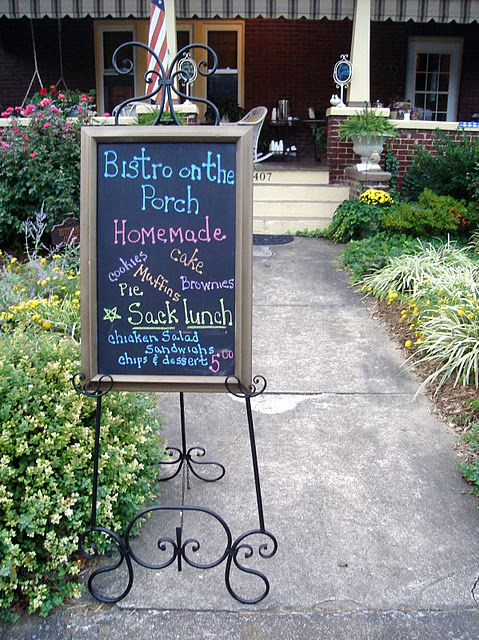 Bistro on the
Porch
Homemade
Cookies Muffins Cake
Pie Brownies
Sack lunch
chicken Salad
Sandwichs
chips & dessert 5.00
407